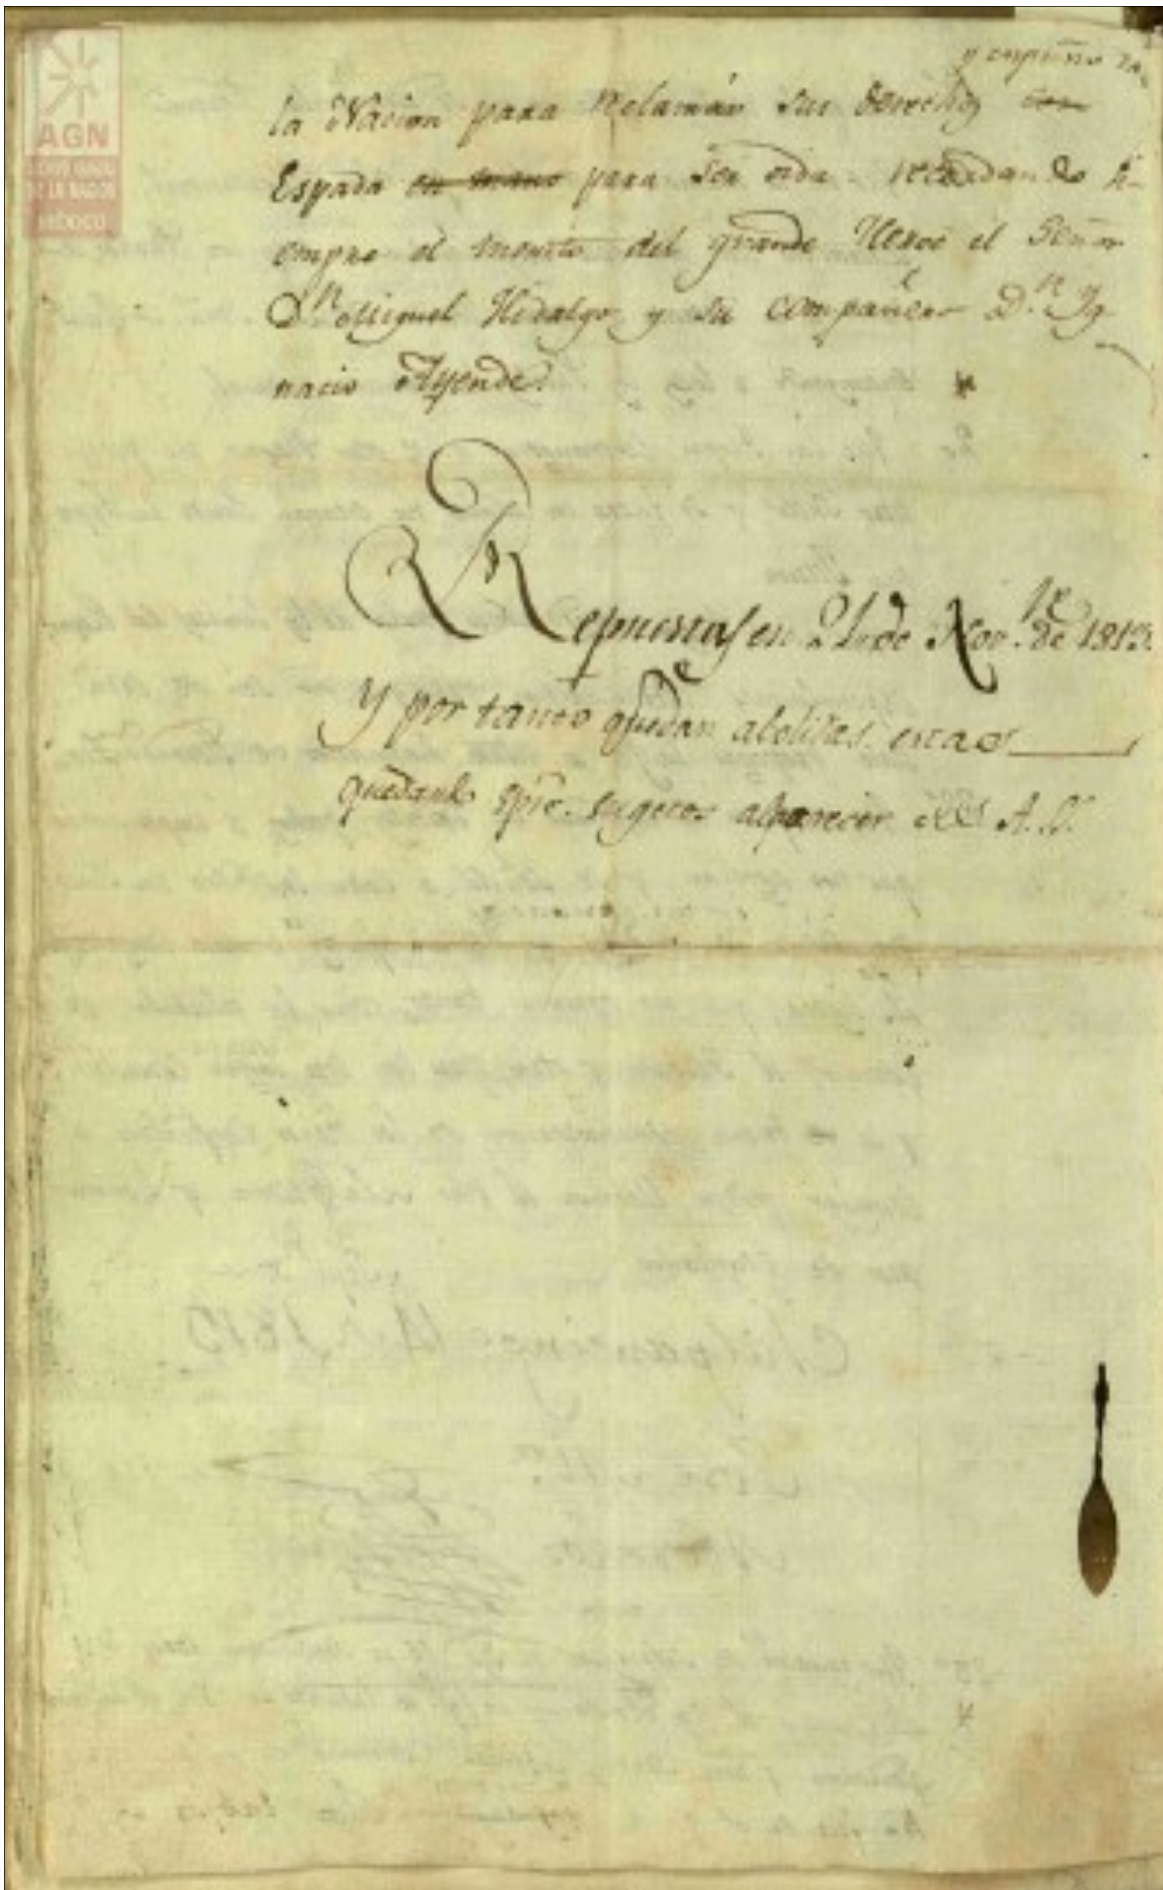 AGN
ARCHIVO GENERAL
DE LA NACION
MÉXICO
y empuño la
la Nacion para reclamar sus derechos con
Espada en mano para ser oida. recordando si-
empre el merito del grande Heroe el Señor
Dn. Miguel Hidalgo y su compañero Dn. Yg-
nacio Allende.
Repuestas en 21 de Novre. de 1813.
Y por tanto quedan abolidas estas
quedando spre. sugetos al parecer de S. A. S.